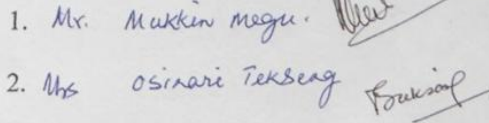 1. Mr. Mukkin Megu.
2. Ms Osinari Tekseng